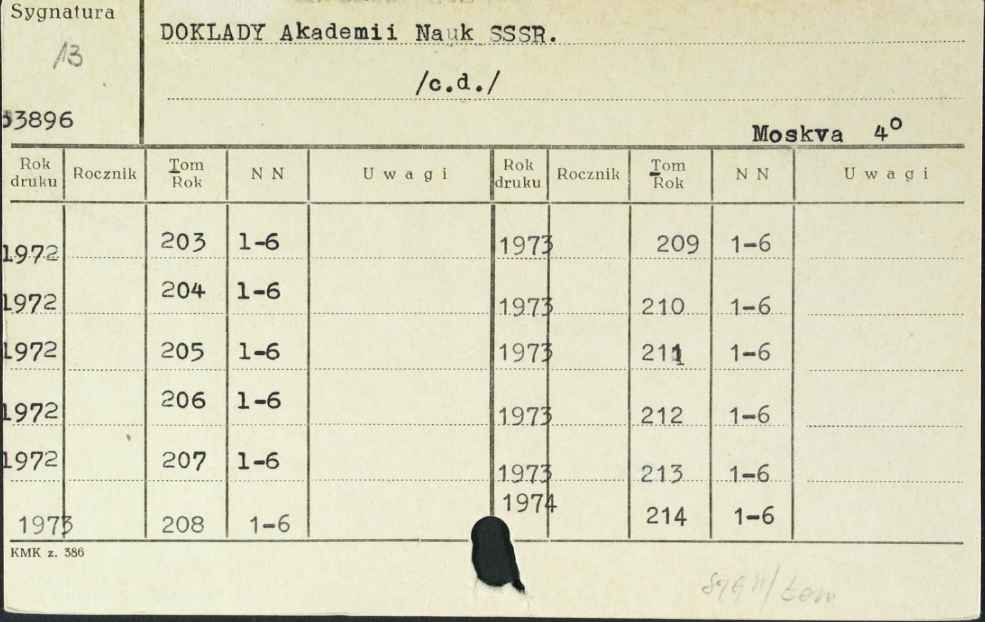 Sygnatura
13
33896
DOKLADY Akademii Nauk SSSR.
/c.d./
Moskva 4°
Rok druku Rocznik Tom Rok N N Uwagi Rok druku Rocznik Tom Rok N N Uwagi
1972 203 1-6 1973 209 1-6
1972 204 1-6 1973 210 1-6
1972 205 1-6 1973 211 1-6
1972 206 1-6 1973 212 1-6
1972 207 1-6 1973 213 1-6
1973 208 1-6 1974 214 1-6
KMK z. 386